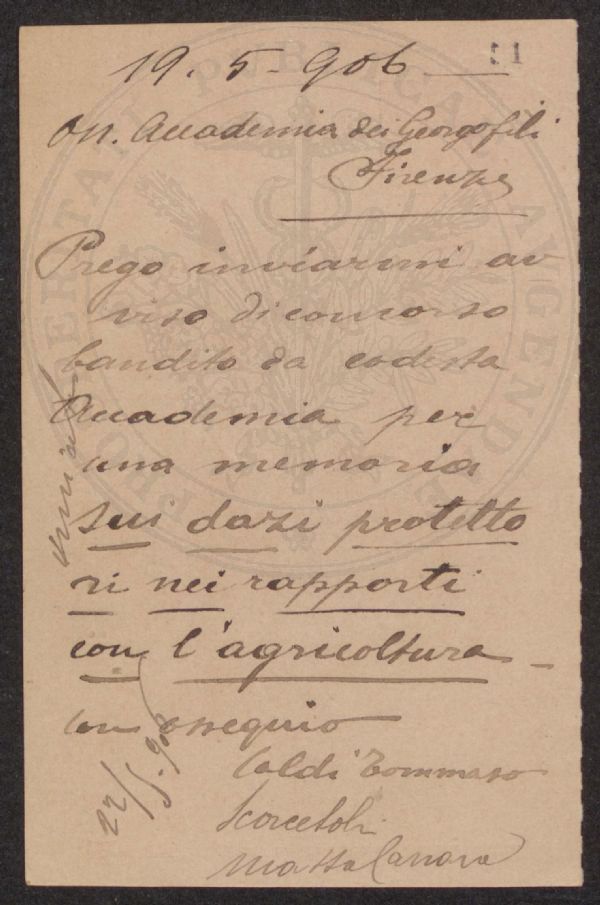 19.5-906
On. Accademia dei Georgofili
Firenze
Prego inviarmi av
viso di concorso
bandito da codesta
Accademia per
una memoria
sui dazi protetto
ri nei rapporti
con l'agricoltura
con ossequio
Caldi Tommaso
Massa Carrara
22/5.906
PROSPERITATI PUBLICAE AVGENDAE